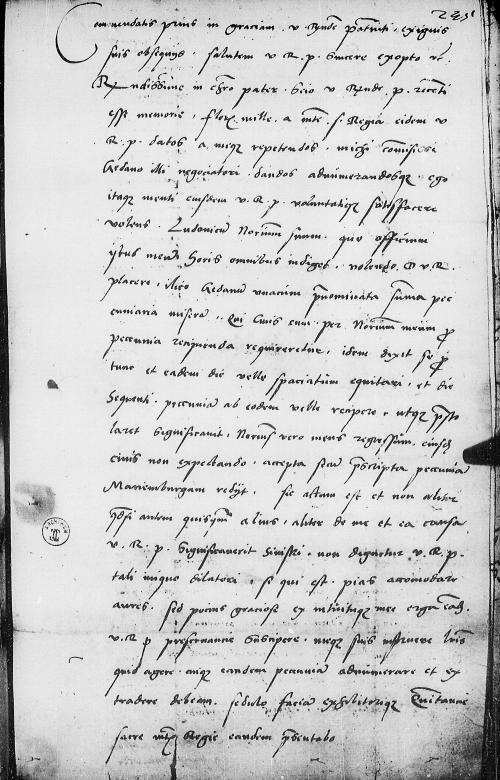 Commendatis prius in graciam v Rnde paternitati exiguis
suis obsequiis salutem v R p sincere exopto etc
Rndissime in chro pater Scio v Rnde p recenti
esse memorie floren mille a mte s Regia eidem v
R p datos a meque repetendos michi comisisse
Gedano illi negociatori dandos adnumerandosque ego
itaque menti eiusdem v R p voluntatique satisfacere
volens Ludovicum Norium suum quo officium
istud meum horis omnibus indiget volendo D v R
placere illico Gedanum unacum prenominata summa pec
cuniaria misera Qui Civis cum per Norium meum pro
peccunia recipienda requireretur idem dixit se pro
tunc et eadem die velle spaciatum equitari et die
sequenti pecuniam ab eodem velle recipere utque presto
laret significavit Norius vero meus regressum eiusdem
civis non expectando accepta secum prescripta peccunia
Mariemburgam redijt sic actum est et non aliter
Quod si autem quispiam alius aliter de me et ea causa
v R p significaverit sinistre non dignetur v R p
tali inique dilatori si qui est pias accomodare
aures sed pocius graciose ex intuituque mee erga eandem
v R p preservancie suscipere meque suis instruere literis
quid agere cuique eandem pecuniam adnumerare et ex
tradere debeam sedulo faciam exhibitorique Quitancie
sacre mtis Regie eandem presentabo